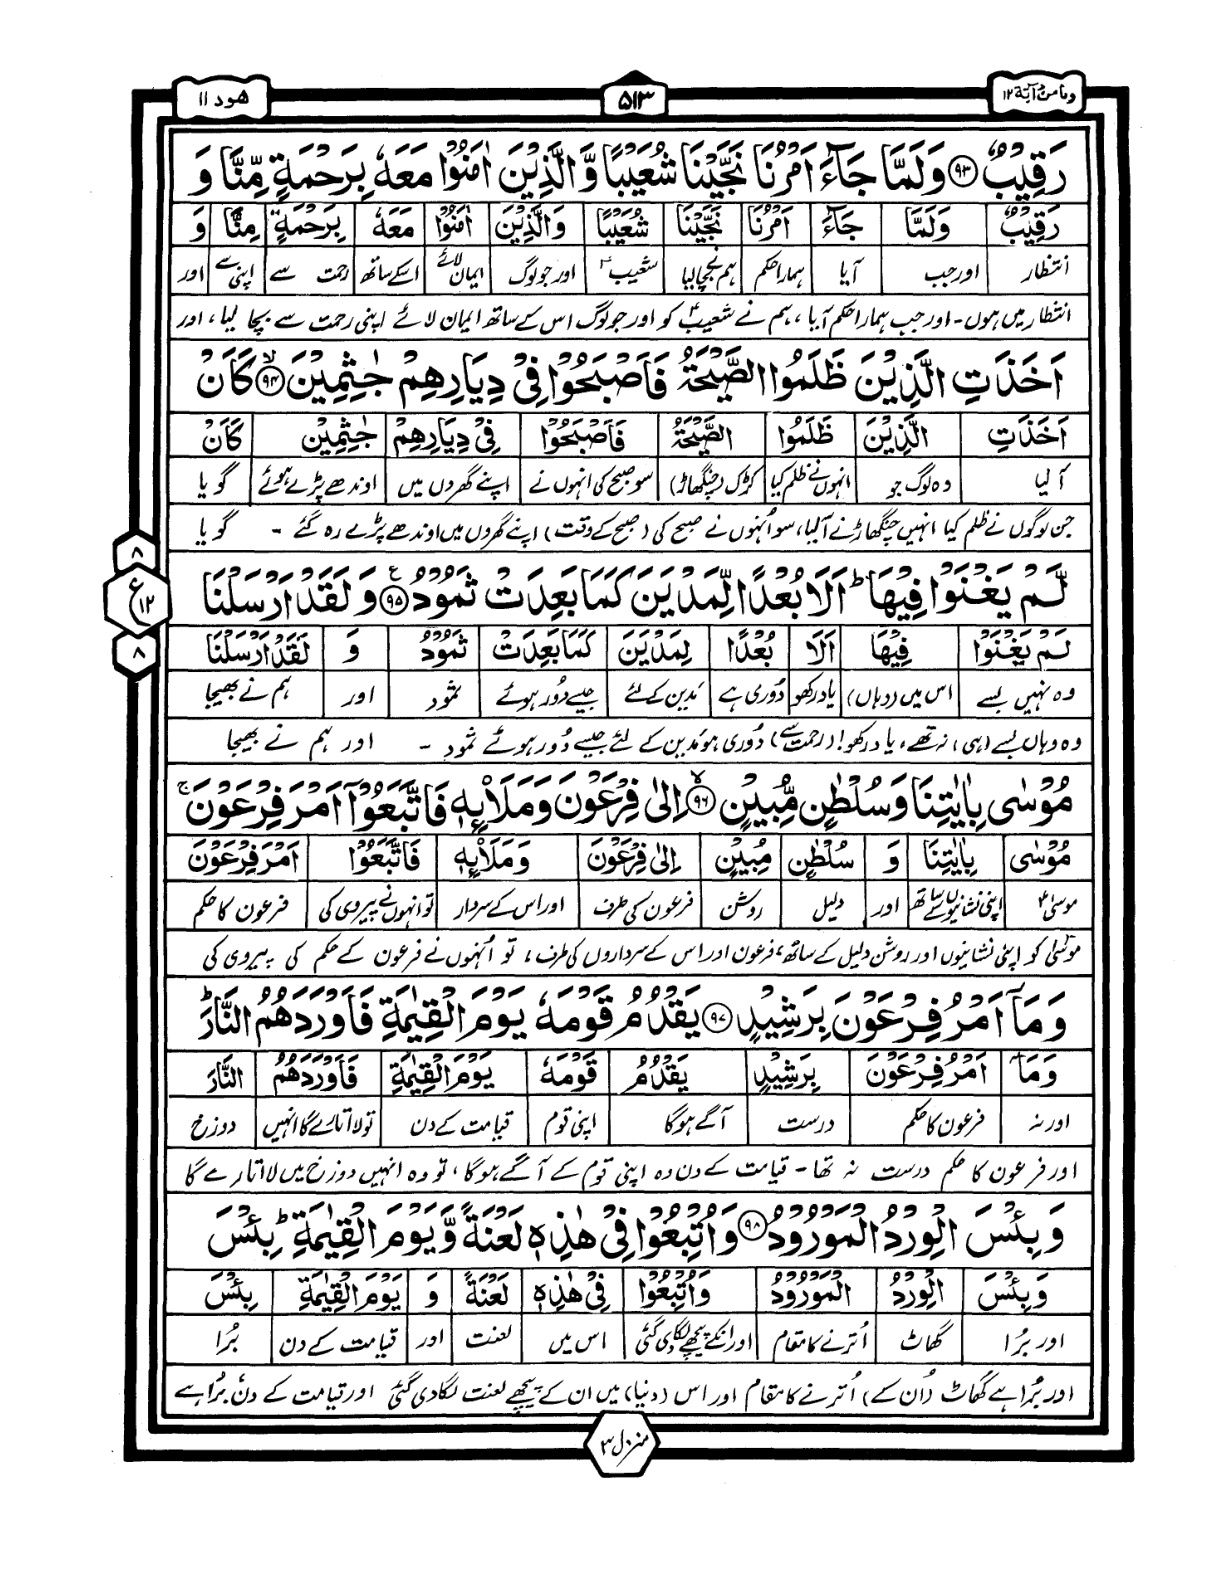 وما من دآبة ۱۲
۵۱۳
ھود ۱۱
رَقِيْبٌ ﴿۹۳﴾ وَلَمَّا جَآءَ اَمْرُنَا نَجَّيْنَا شُعَيْبًا وَّالَّذِيْنَ اٰمَنُوْا مَعَهٗ بِرَحْمَةٍ مِّنَّا وَ
رَقِيْبٌ وَلَمَّا جَآءَ اَمْرُنَا نَجَّيْنَا شُعَيْبًا وَالَّذِيْنَ اٰمَنُوْا مَعَهٗ بِرَحْمَةٍ مِنَّا وَ
انتظار اور جب آیا ہمارا حکم ہم نے بچا لیا شعیبؑ اور جو لوگ ایمان لائے اسکے ساتھ رحمت سے اپنی سے اور
انتظار میں ہوں۔ اور جب ہمارا حکم آیا ، ہم نے شعیبؑ کو اور جو لوگ اس کے ساتھ ایمان لائے اپنی رحمت سے بچا لیا ، اور
اَخَذَتِ الَّذِيْنَ ظَلَمُوا الصَّيْحَةُ فَاَصْبَحُوْا فِيْ دِيَارِهِمْ جٰثِمِيْنَ ﴿۹۴﴾ كَاَنْ
اَخَذَتِ الَّذِيْنَ ظَلَمُوا الصَّيْحَةُ فَاَصْبَحُوْا فِيْ دِيَارِهِمْ جٰثِمِيْنَ كَاَنْ
آ لیا وہ لوگ جو انہوں نے ظلم کیا کڑک (چنگھاڑ) سو صبح کی انہوں نے اپنے گھروں میں اوندھے پڑے ہوئے گویا
جن لوگوں نے ظلم کیا انہیں چنگھاڑ نے آلیا، سو اُنہوں نے صبح کی (صبح کے وقت) اپنے گھروں میں اوندھے پڑے رہ گئے ۔ گویا
لَّمْ يَغْنَوْا فِيْهَا ؕ اَلَا بُعْدًا لِّمَدْيَنَ كَمَا بَعِدَتْ ثَمُوْدُ ﴿۹۵﴾ وَلَقَدْ اَرْسَلْنَا
۸
ع ۱۲
۸
لَمْ يَغْنَوْا فِيْهَا اَلَا بُعْدًا لِمَدْيَنَ كَمَا بَعِدَتْ ثَمُوْدُ وَ لَقَدْ اَرْسَلْنَا
وہ نہیں بسے اس میں (وہاں) یاد رکھو دُوری ہے مَدین کے لئے جیسے دُور ہوئے ثمود اور ہم نے بھیجا
وہ وہاں بسے (ہی) نہ تھے، یاد رکھو! (رحمت سے) دُوری ہو مَدین کے لئے جیسے دُور ہوئے ثمود ۔ اور ہم نے بھیجا
مُوْسٰى بِاٰيٰتِنَا وَسُلْطٰنٍ مُّبِيْنٍ ﴿۹۶﴾ اِلٰى فِرْعَوْنَ وَمَلَاْئِهٖ فَاتَّبَعُوْٓا اَمْرَ فِرْعَوْنَ ۚ
مُوْسٰى بِاٰيٰتِنَا وَ سُلْطٰنٍ مُبِيْنٍ اِلٰى فِرْعَوْنَ وَمَلَاْئِهٖ فَاتَّبَعُوْٓا اَمْرَ فِرْعَوْنَ
موسیٰؑ اپنی نشانیوں کے ساتھ اور دلیل روشن فرعون کی طرف اور اس کے سردار تو انہوں نے پیروی کی فرعون کا حکم
موسیٰؑ کو اپنی نشانیوں اور روشن دلیل کے ساتھ، فرعون اور اس کے سرداروں کی طرف ، تو اُنہوں نے فرعون کے حکم کی پیروی کی
وَمَآ اَمْرُ فِرْعَوْنَ بِرَشِيْدٍ ﴿۹۷﴾ يَقْدُمُ قَوْمَهٗ يَوْمَ الْقِيٰمَةِ فَاَوْرَدَهُمُ النَّارَ ؕ
وَمَآ اَمْرُ فِرْعَوْنَ بِرَشِيْدٍ يَقْدُمُ قَوْمَهٗ يَوْمَ الْقِيٰمَةِ فَاَوْرَدَهُمُ النَّارَ
اور نہ فرعون کا حکم درست آگے ہوگا اپنی قوم قیامت کے دن تو لا اتارے گا انہیں دوزخ
اور فرعون کا حکم درست نہ تھا ۔ قیامت کے دن وہ اپنی قوم کے آگے ہوگا ، تو وہ انہیں دوزخ میں لا اتارے گا
وَبِئْسَ الْوِرْدُ الْمَوْرُوْدُ ﴿۹۸﴾ وَاُتْبِعُوْا فِيْ هٰذِهٖ لَعْنَةً وَّيَوْمَ الْقِيٰمَةِ ؕ بِئْسَ
وَبِئْسَ الْوِرْدُ الْمَوْرُوْدُ وَاُتْبِعُوْا فِيْ هٰذِهٖ لَعْنَةً وَ يَوْمَ الْقِيٰمَةِ بِئْسَ
اور بُرا گھاٹ اُترنے کا مقام اور انکے پیچھے لگا دی گئی اس میں لعنت اور قیامت کے دن بُرا
اور بُرا ہے گھاٹ (اُن کے) اُترنے کا مقام اور اس (دنیا) میں ان کے پیچھے لعنت لگا دی گئی اور قیامت کے دن بُرا ہے
منزل ۳